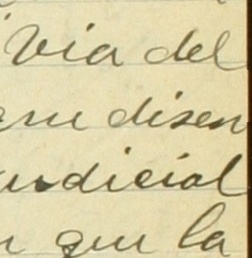 Via del
que disen
judicial
que la